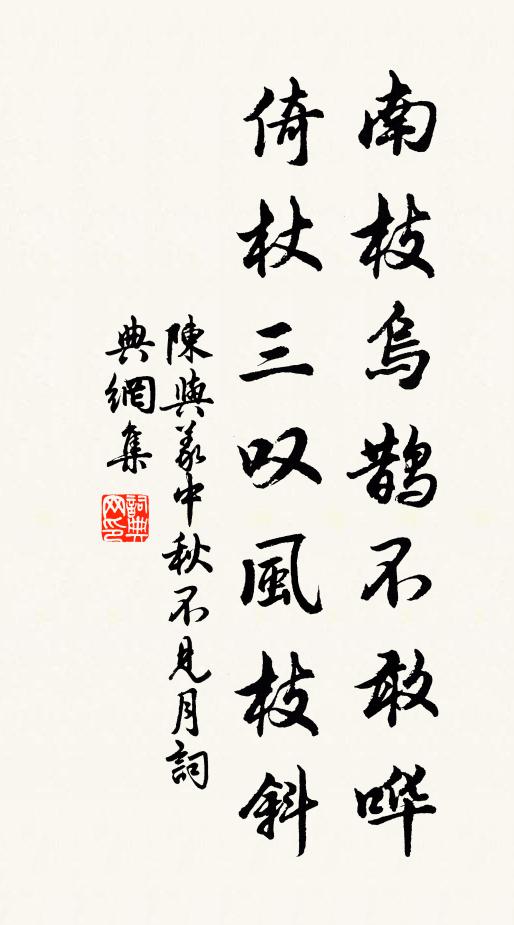 南枝烏鵲不敢哗
倚杖三叹風枝斜
陳與義中秋不見月詞
典網集
詞典网印